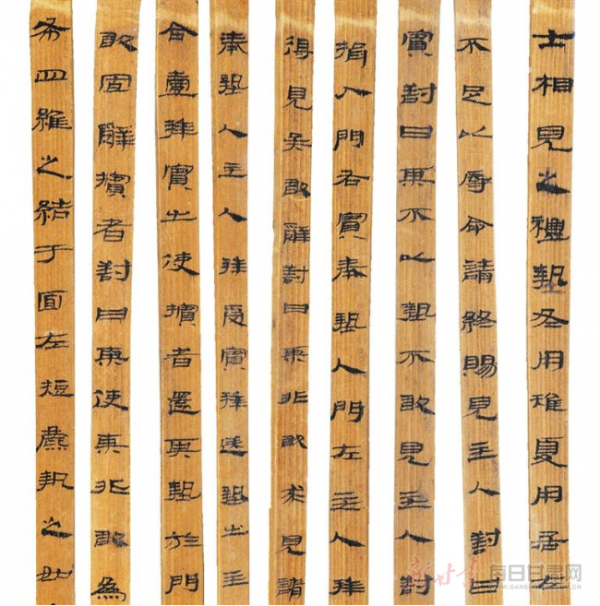 士相見之禮摯冬用雉夏用居左
不足以辱命請終賜見主人對曰
賓對曰某不以摯不敢見主人對
揖入門右賓奉摯入門左主人拜
得見矣敢辭對曰某非敢求見諸
奉摯入主人拜受賓拜送摯出主
合壹拜賓出使擯者還其摯於門
敢固辭擯者對曰某使某非敢為
布四維之結于面左麛執之如
新甘肃 每日甘肃网